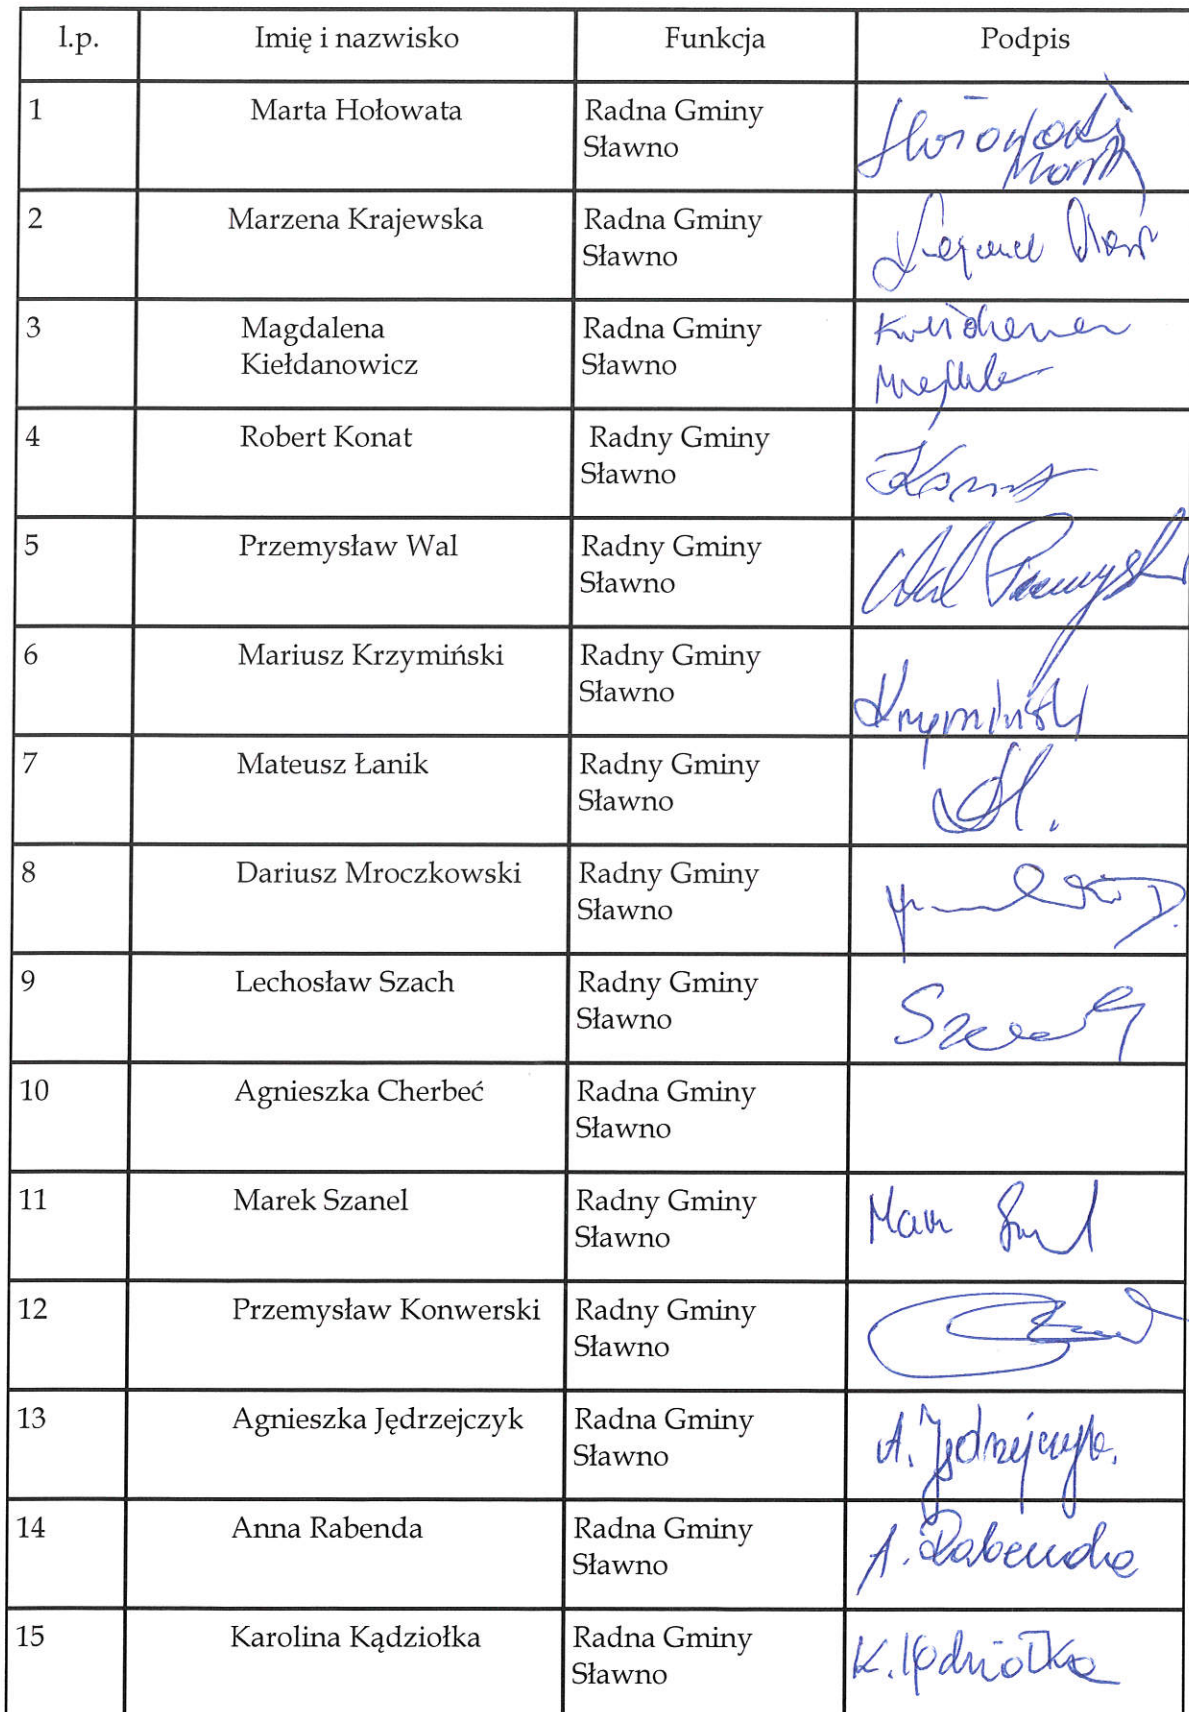 l.p. Imię i nazwisko Funkcja Podpis
1 Marta Hołowata Radna Gminy
Sławno
2 Marzena Krajewska Radna Gminy
Sławno
3 Magdalena Radna Gminy
Kiełdanowicz Sławno
4 Robert Konat Radny Gminy
Sławno Konat
5 Przemysław Wal Radny Gminy
Sławno Wal
6 Mariusz Krzymiński Radny Gminy
Sławno Krzymiński
7 Mateusz Łanik Radny Gminy
Sławno
8 Dariusz Mroczkowski Radny Gminy
Sławno
9 Lechosław Szach Radny Gminy
Sławno
10 Agnieszka Cherbeć Radna Gminy
Sławno
11 Marek Szanel Radny Gminy
Sławno
12 Przemysław Konwerski Radny Gminy
Sławno
13 Agnieszka Jędrzejczyk Radna Gminy A. Jędrzejczyk.
Sławno
14 Anna Rabenda Radna Gminy A. Rabenda
Sławno
15 Karolina Kądziołka Radna Gminy K. Kądziołka
Sławno